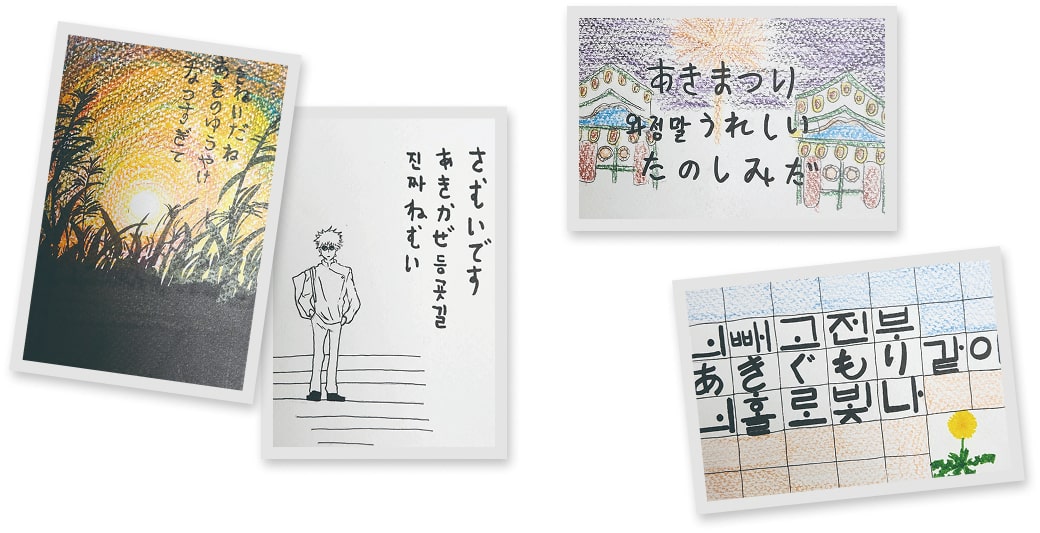 きれいだね
あきのゆうやけ
まなつすぎて
さむいです
あきかぜ등굣길
진짜 ねむい
あきまつり
와 정말うれしい
たのしみだ
의빼고전부
あきぐもり같이
의홀로빛나